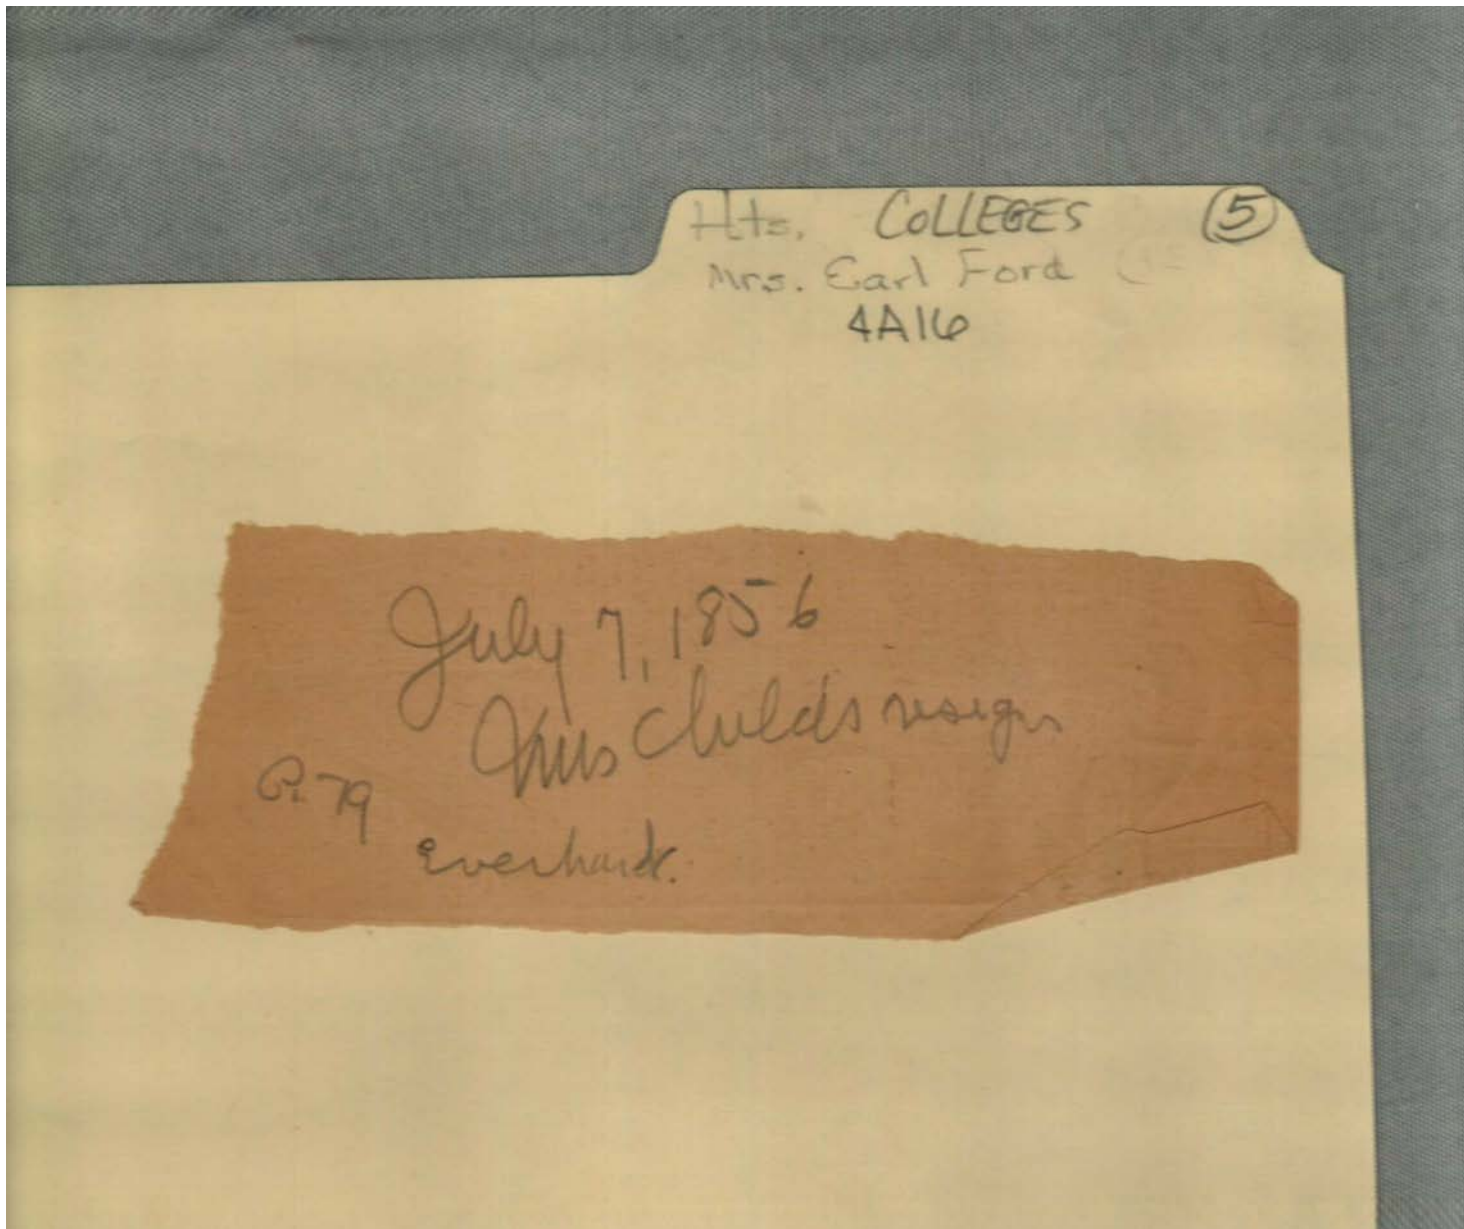 Hts. COLLEGES 5
Mrs. Earl Ford
4A16
July 7, 1856
Miss Childs resigns
P. 79
Everhard.